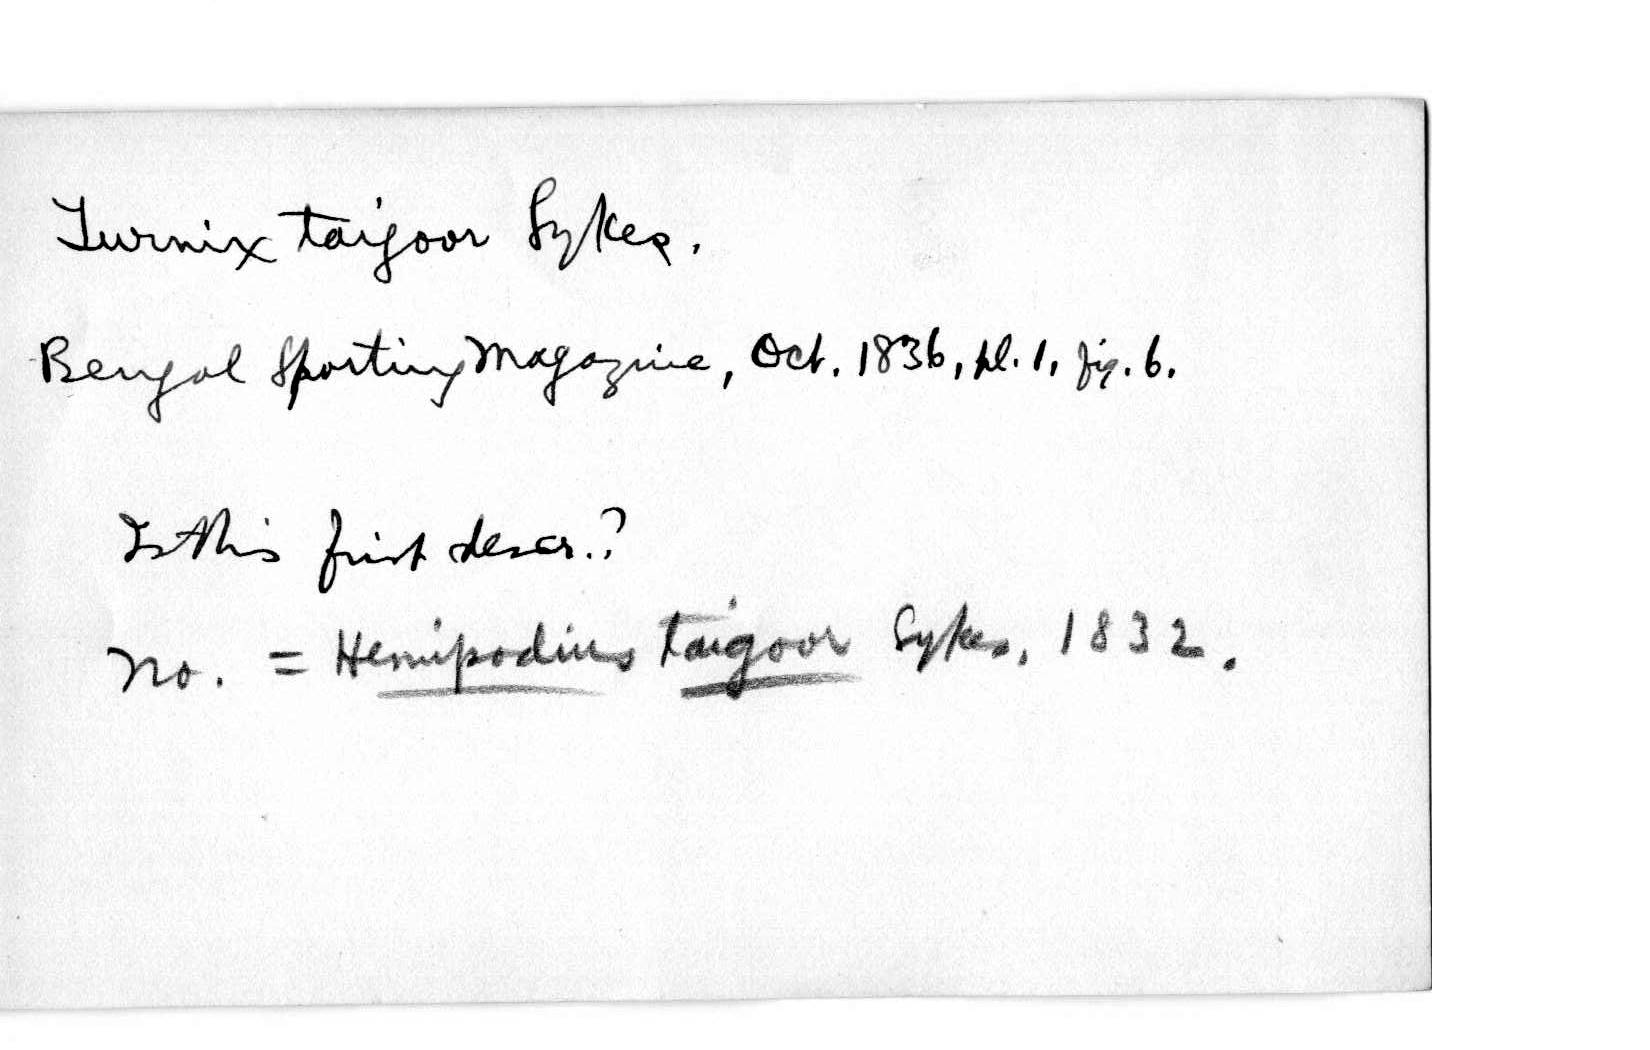 Turnix taigoor Sykes.
Bengal Sporting Magazine, Oct. 1836, pl. 1, fig. 6.
Is this first descr.?
No. = Hemipodius taigoor Sykes, 1832.